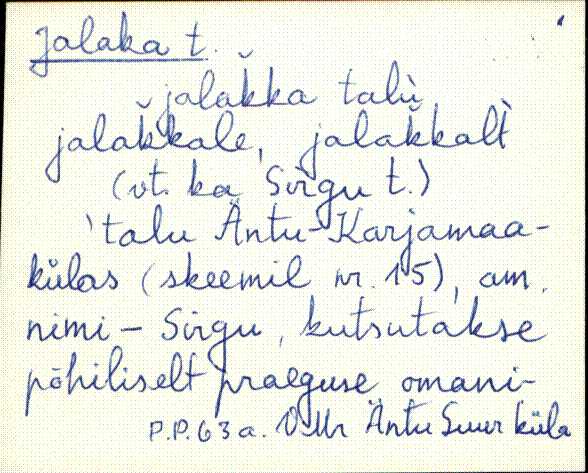 Jalaka t.
jalak̆ka talù
jalak̆kale, jalak̆kalt̀
(vt. ka Sirgu t.)
'talu Äntu-Karjamaa-
külas (skeemil nr. 15), am.
nimi – Sirgu, kutsutakse
põhiliselt praeguse omani-
P.P. 63 a. V-Mr Äntu Suurküla